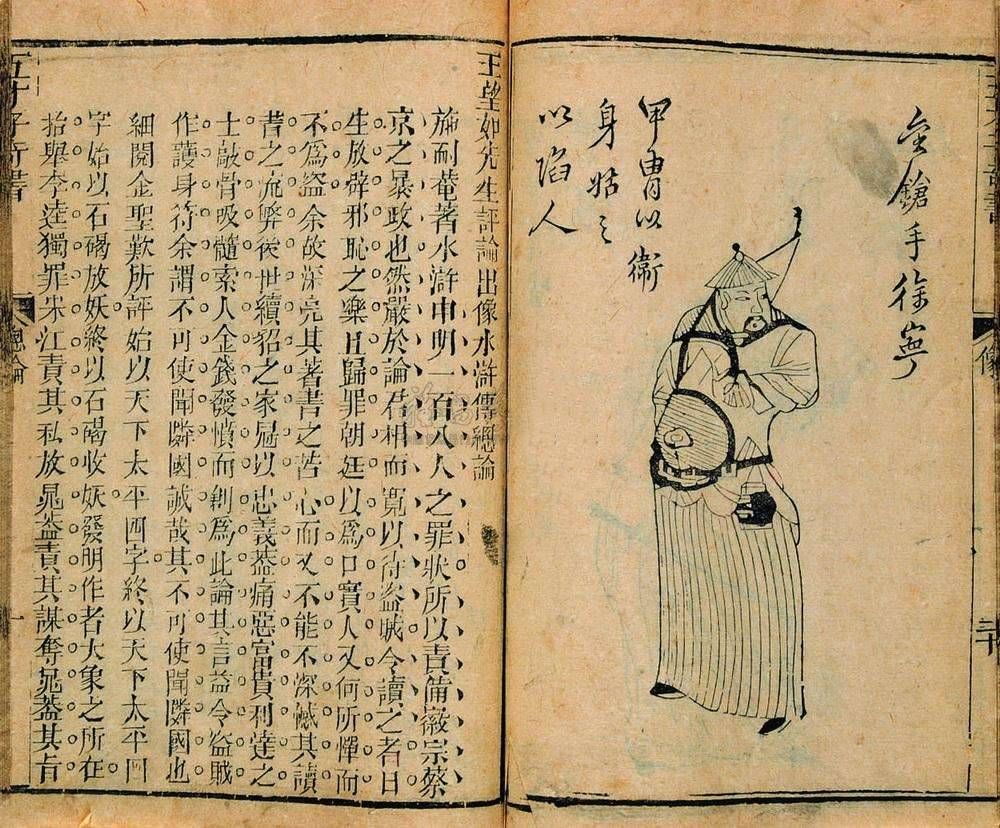 像
三十
金鎗手徐寧
甲冑以衛
身
以陷人
王望如先生評論出像水滸傳總論
施耐菴著水滸申明一百八人之罪狀所以責備徽宗蔡
京之暴政也然嚴於論君相而寬以待盜賊令讀之者日
生放辟邪恥之樂且歸罪朝廷以爲口實人又何所憚而
不爲盜余故深亮其著書之苦心而又不能不深憾其讀
昔之流弊後世續貂之家冠以忠義葢痛惡富貴利達之
士敲骨吸髓索人金錢發憤而剏爲此論其言益令盜賊
作護身符余謂不可使聞隣國誠哉其不可使聞隣國也
細閱金聖歎所評始以天下太平四字終以天下太平四
字始以石碣放妖終以石碣收妖發明作者大象之所在
抬舉李逵獨罪宋江責其私放晁葢責其謀奪晁葢其旨
五才子奇書
總論
一